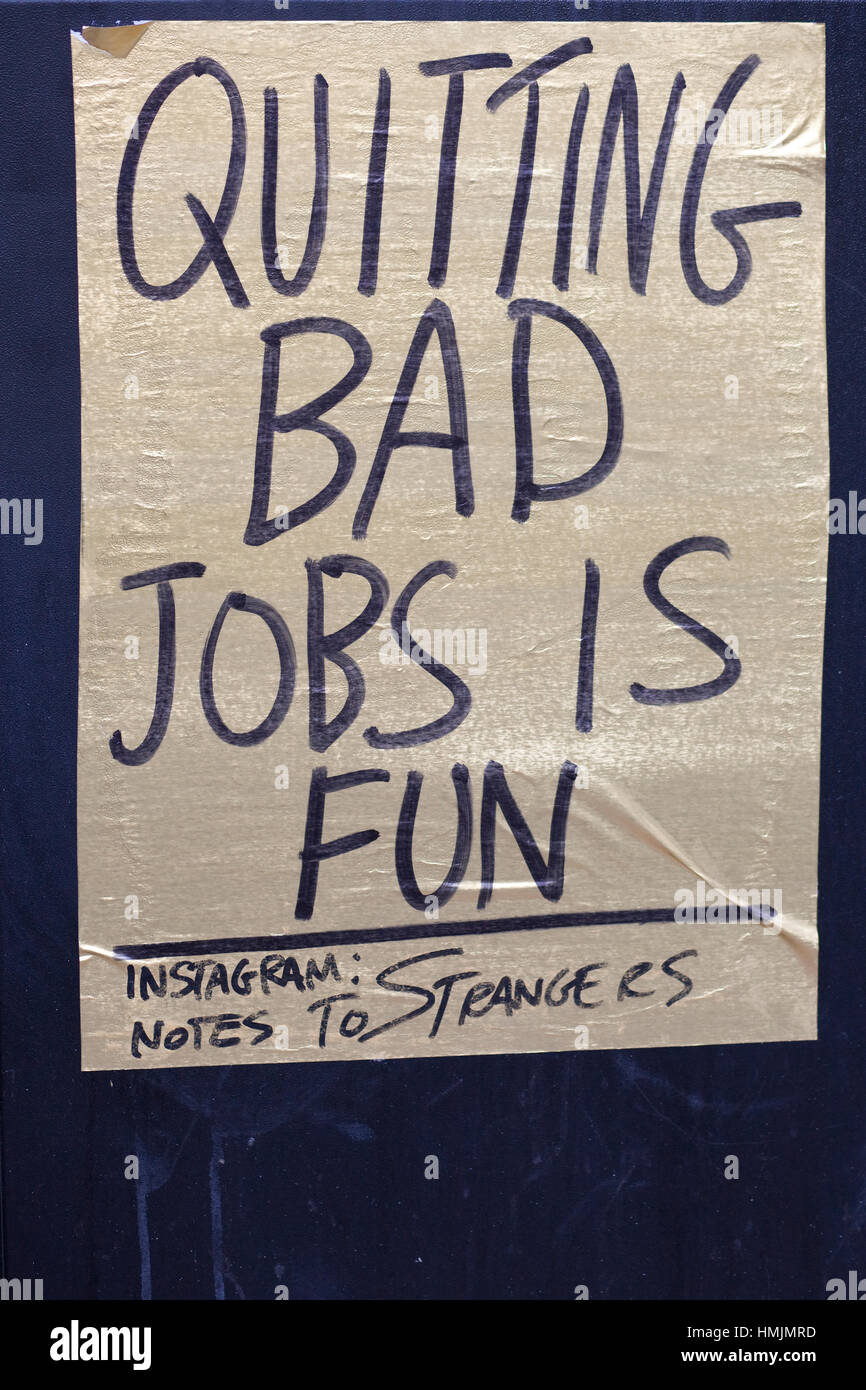 QUITTING
BAD
JOBS IS
FUN
INSTAGRAM:
NOTES TO STRANGERS
alamy stock photo
HMJMRD
www.alamy.com